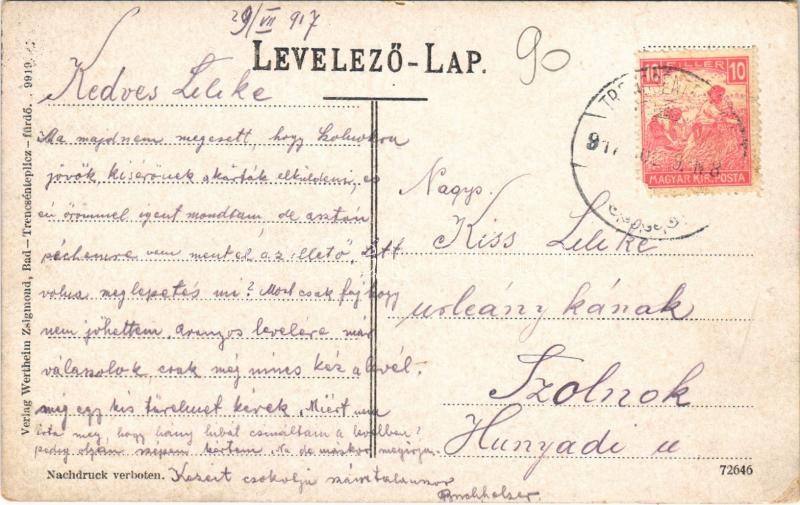 29/VII 917
LEVELEZŐ-LAP.
90
10 FILLÉR 10
MAGYAR KIR. POSTA
Kedves Lilike
Ma majdnem megesett, hogy
jövök, kisérőnek akartak elküldeni, es
én örömmel igent mondtam, de aztán
pechemre nem ment el az illető. Lett
volna meglepetés mi? Most csak fáj hogy
nem jöhettem, aranyos levelére már
válaszolok, csak még nincs kéz a levél.
még egy kis türelmet kérek. Miért nem
irta meg, hogy hány hibát csináltam a levélben?
pedig olyan szépen kértem. Na de máskor megirja.
Kezeit csokolja számtalanszor
Buchholzer.
Nagys.
Kiss Lilike
urleány kának
Szolnok
Hunyadi u
Verlag Wertheim Zsigmond, Bad-Trencsénteplicz-fürdő. 9919.
Nachdruck verboten.
72646